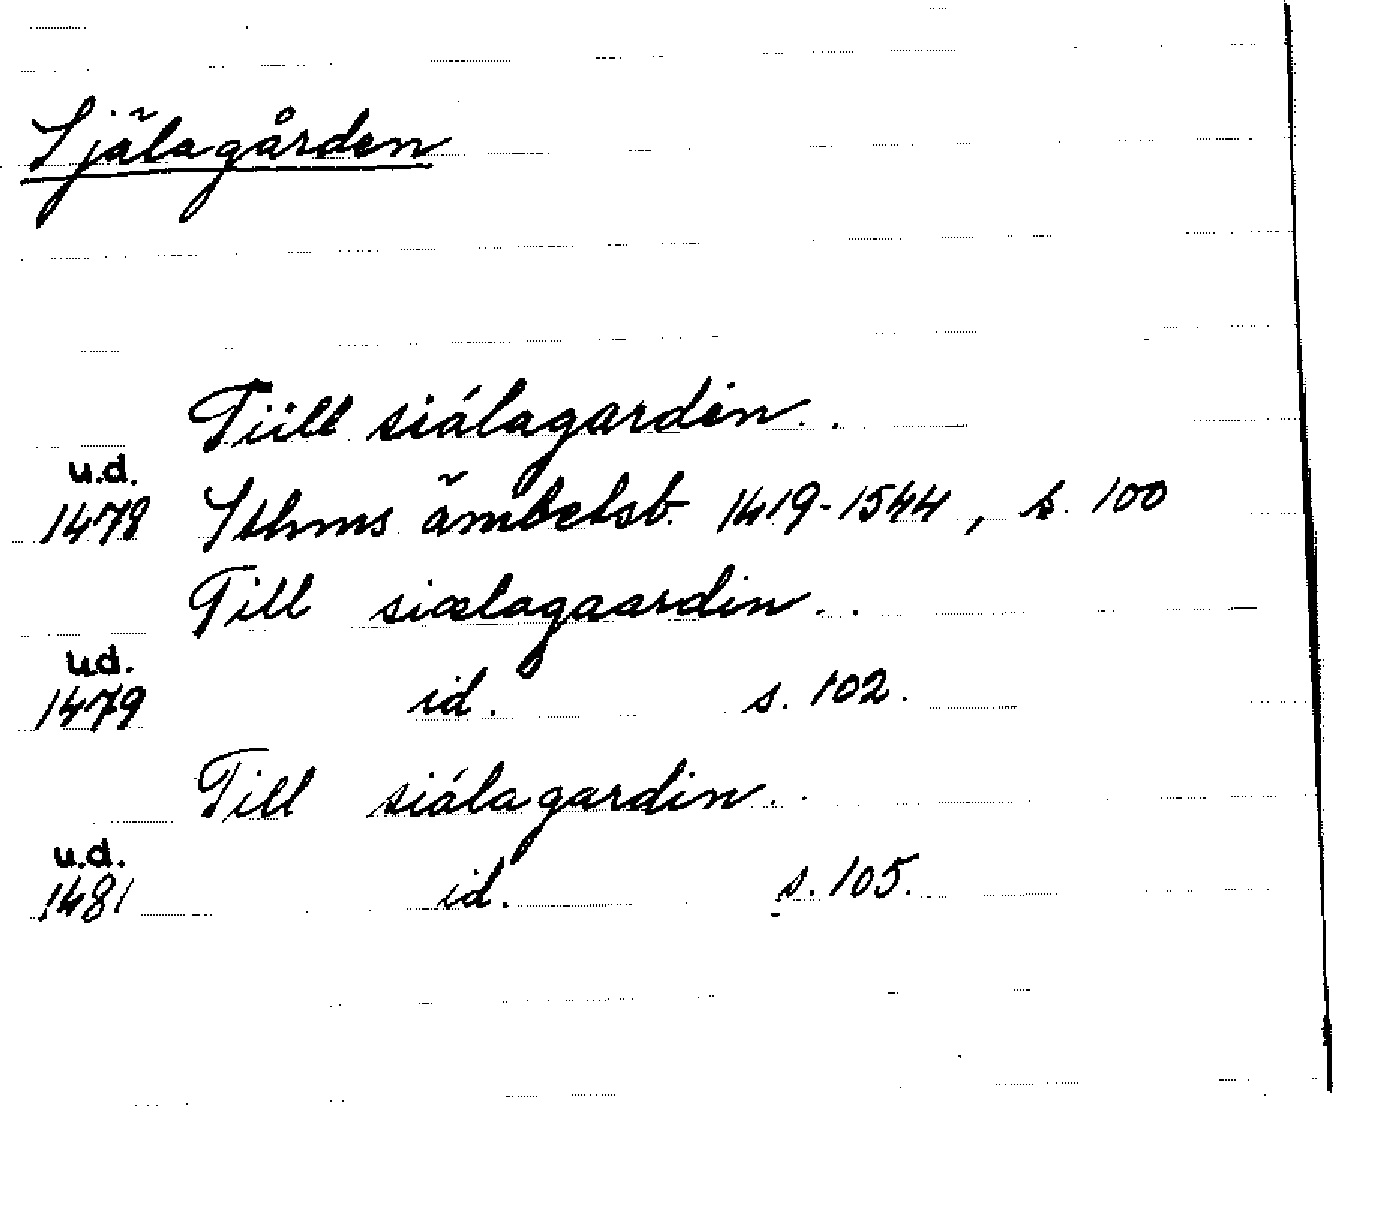 Själagården
Tiill siálagardin..
u.d.
1478 Sthms ämbetsb. 1419-1544, s. 100
Till siælagaardin..
u.d.
1479 id. s. 102.
Till siálagardin..
u.d.
1481 id. s. 105.